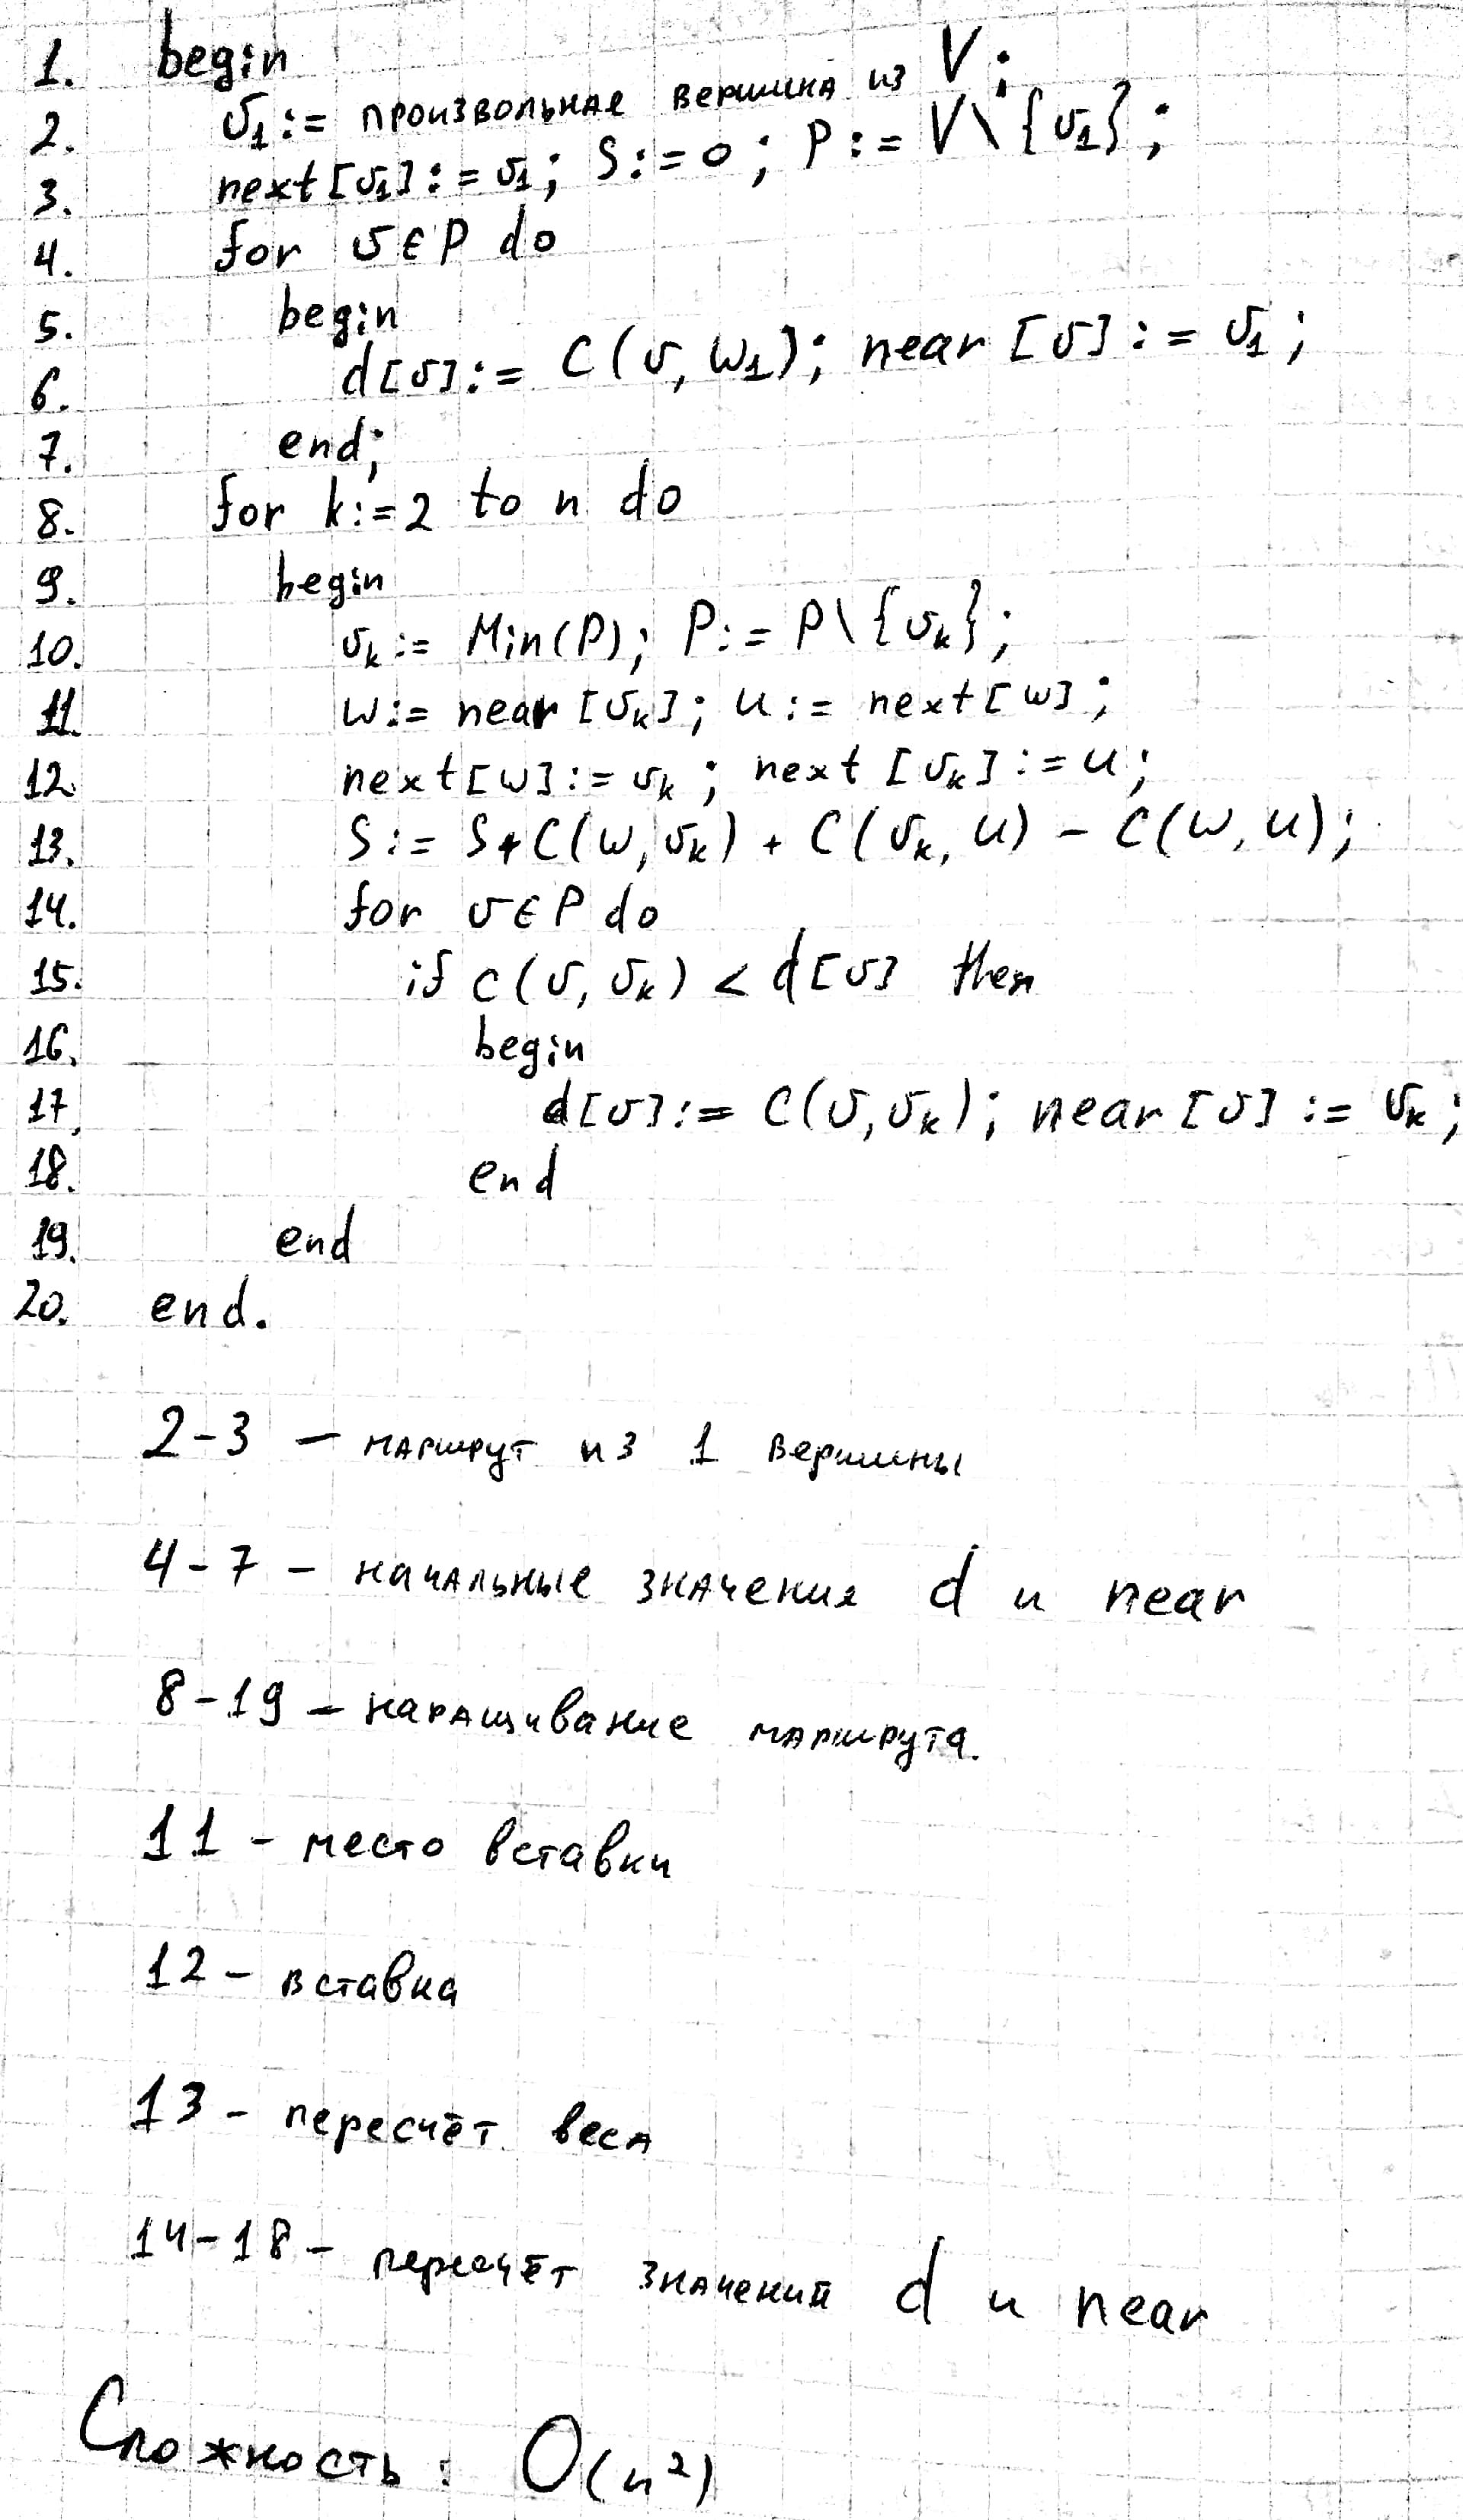 1. begin
2. v₁ := произвольная вершина из V;
3. next[v₁] := v₁; S := 0; P := V\{v₁};
4. for v ∈ P do
5. begin
6. d[v] := C(v, w₁); near[v] := v₁;
7. end;
8. for k := 2 to n do
9. begin
10. vₖ := Min(P); P := P\{vₖ};
11. w := near[vₖ]; u := next[w];
12. next[w] := vₖ; next[vₖ] := u;
13. S := S + C(w, vₖ) + C(vₖ, u) - C(w, u);
14. for v ∈ P do
15. if c(v, vₖ) < d[v] then
16. begin
17. d[v] := C(v, vₖ); near[v] := vₖ;
18. end
19. end
20. end.
2-3 - маршрут из 1 вершины
4-7 - начальные значения d и near
8-19 - наращивание маршрута.
11 - место вставки
12 - вставка
13 - пересчёт веса
14-18 - пересчёт значений d и near
Сложность: O(n²)